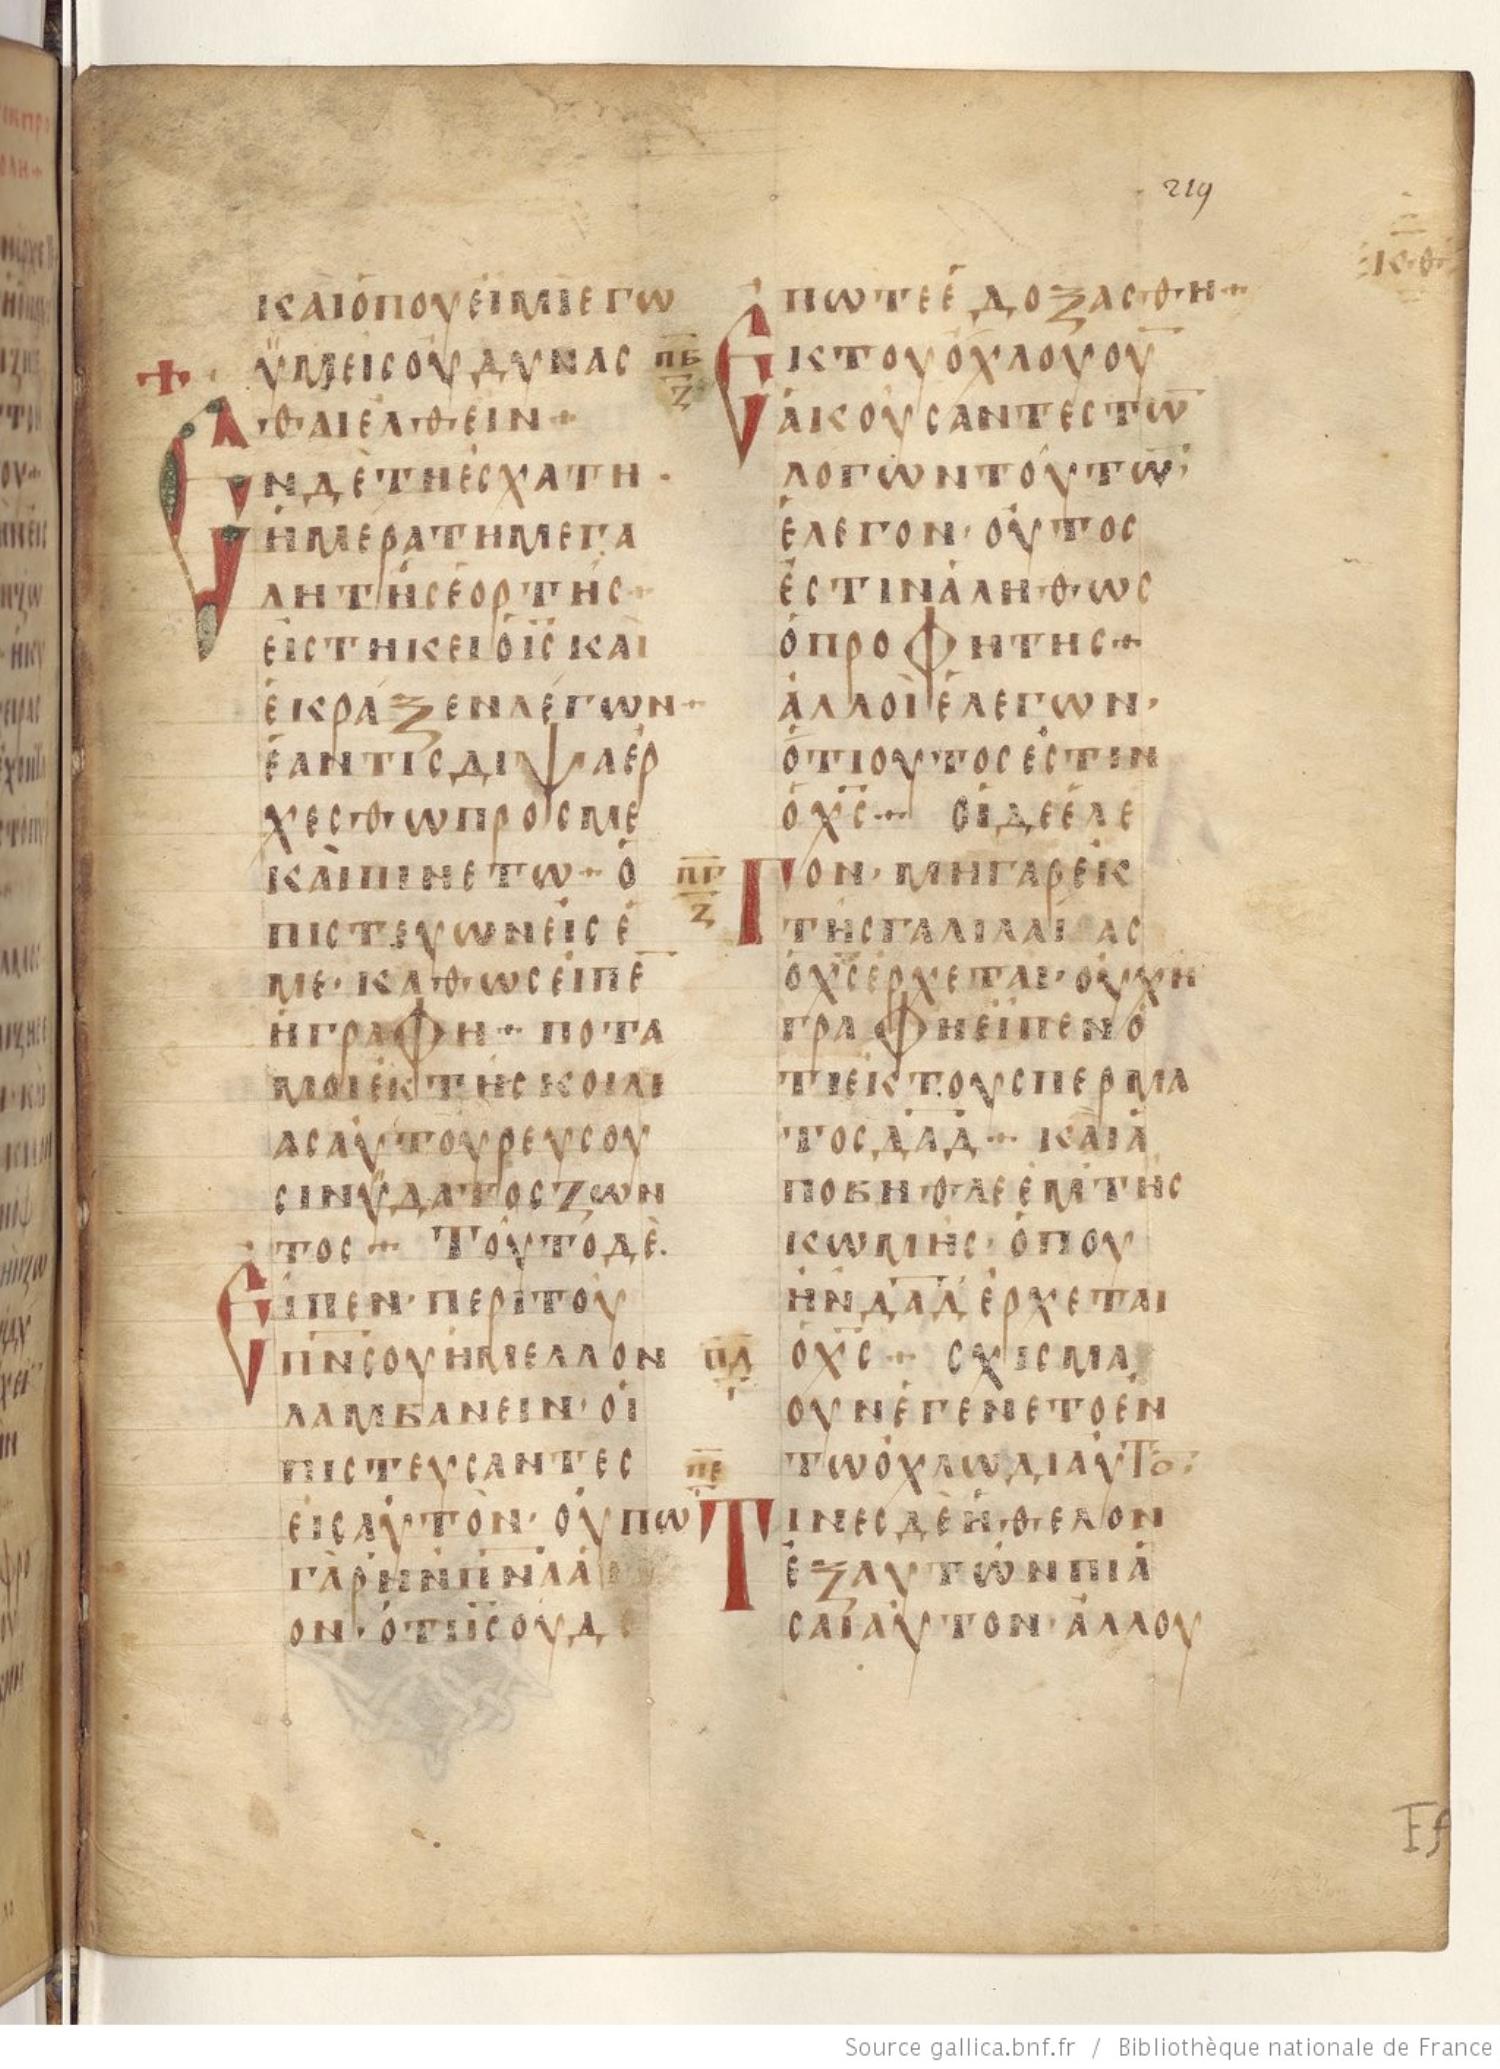 219
Κ·Θ·
ΚΑῚὉΠΟΥΕἸΜῚἘΓΩ
ΫΜΕΙΣΟΥΔΥΝΑΣ
ΘΑΙΕΛΘΕΙΝ+
ΕΝΔῈΤΗΕΣΧΑΤΗ·
ἩΜΕΡΑΤΗΜΕΓΑ
ΛΗΤΗΣΕΟΡΤΗΣ+
ΕἹΣΤΗΚΕΙὉΙ̅Σ̅ΚΑῚ
ἘΚΡΑΞΕΝΛΕΓΩΝ+
ἘΑΝΤΙΣΔΙΨΑΕΡ
ΧΕΣΘΩΠΡΟΣΜΕ
ΚΑῚΠΙΝΕΤΩ+Ὁ
ΠΙΣΤΕΥΩΝΕΙΣΕ
ΜΕ·ΚΑΘΩΣΕΙΠΕ̅
ἩΓΡΑΦΗ+ΠΟΤΑ
ΜΟΙΕΚΤΗΣΚΟΙΛΙ
ΑΣΑΥΤΟΥΡΕΥΣΟΥ
ΣΙΝΫΔΑΤΟΣΖΩΝ
ΤΟΣ+ΤΟΥΤΟΔῈ.
ΕΙΠΕΝ·ΠΕΡΙΤΟΥ
Π̅Ν̅Σ̅ΟΥΗΜΕΛΛΟΝ
ΛΑΜΒΑΝΕΙΝ·ΟΙ
ΠΙΣΤΕΥΣΑΝΤΕΣ
ΕΙΣΑΥΤΟΝ·ΟΥΠΩ
ΓΑΡΗΝΠ̅Ν̅ΑΆΓΙ
ΟΝ·ὉΤΙΙ̅Σ̅ΟΥΔΕ
ΠΩΤΕΕΔΟΞΑΣΘΗ+
Π̅Β̅
Ζ
ΕΚΤΟΥΟΧΛΟΥΟΥ̅
ἈΚΟΥΣΑΝΤΕΣΤΩ̅
ΛΟΓΩΝΤΟΥΤΩ̅·
ἘΛΕΓΟΝ·ΟΥΤΟΣ
ἘΣΤΙΝΑΛΗΘΩΣ
ὉΠΡΟΦΗΤΗΣ+
ἈΛΛΟΙΕΛΕΓΩΝ·
ὉΤΙΟΥΤΟΣΕΣΤΙΝ
ὉΧ̅Σ̅+ΟΙΔΕΕΛΕ
Π̅Γ̅
Ζ
ΓΟΝ·ΜΗΓΑΡΕΚ
ΤΗΣΓΑΛΙΛΑΙΑΣ
ὉΧ̅Σ̅ΕΡΧΕΤΑΙ·ΟΥΧΗ
ΓΡΑΦΗΕΙΠΕΝΟ
ΤΙΕΚΤΟΥΣΠΕΡΜΑ
ΤΟΣΔ̅Α̅Δ̅+ΚΑΙΑ
ΠΟΒΗΘΛΕΕΜΤΗΣ
ΚΩΜΗΣ·ὉΠΟΥ
ΗΝΔ̅Α̅Δ̅ΕΡΧΕΤΑΙ
ὉΧ̅Σ̅+ΣΧΙΣΜΑ
Π̅Δ̅
ΟΥΝΕΓΕΝΕΤΟΕΝ
ΤΩΟΧΛΩΔΙΑΥΤΟ̅·
Π̅Ε̅
ΤΙΝΕΣΔΕΗΘΕΛΟΝ
ἘΞΑΥΤΩΝΠΙΑ
ΣΑΙΑΥΤΟΝ·ΑΛΛΟΥ
Ff
Source gallica.bnf.fr / Bibliothèque nationale de France